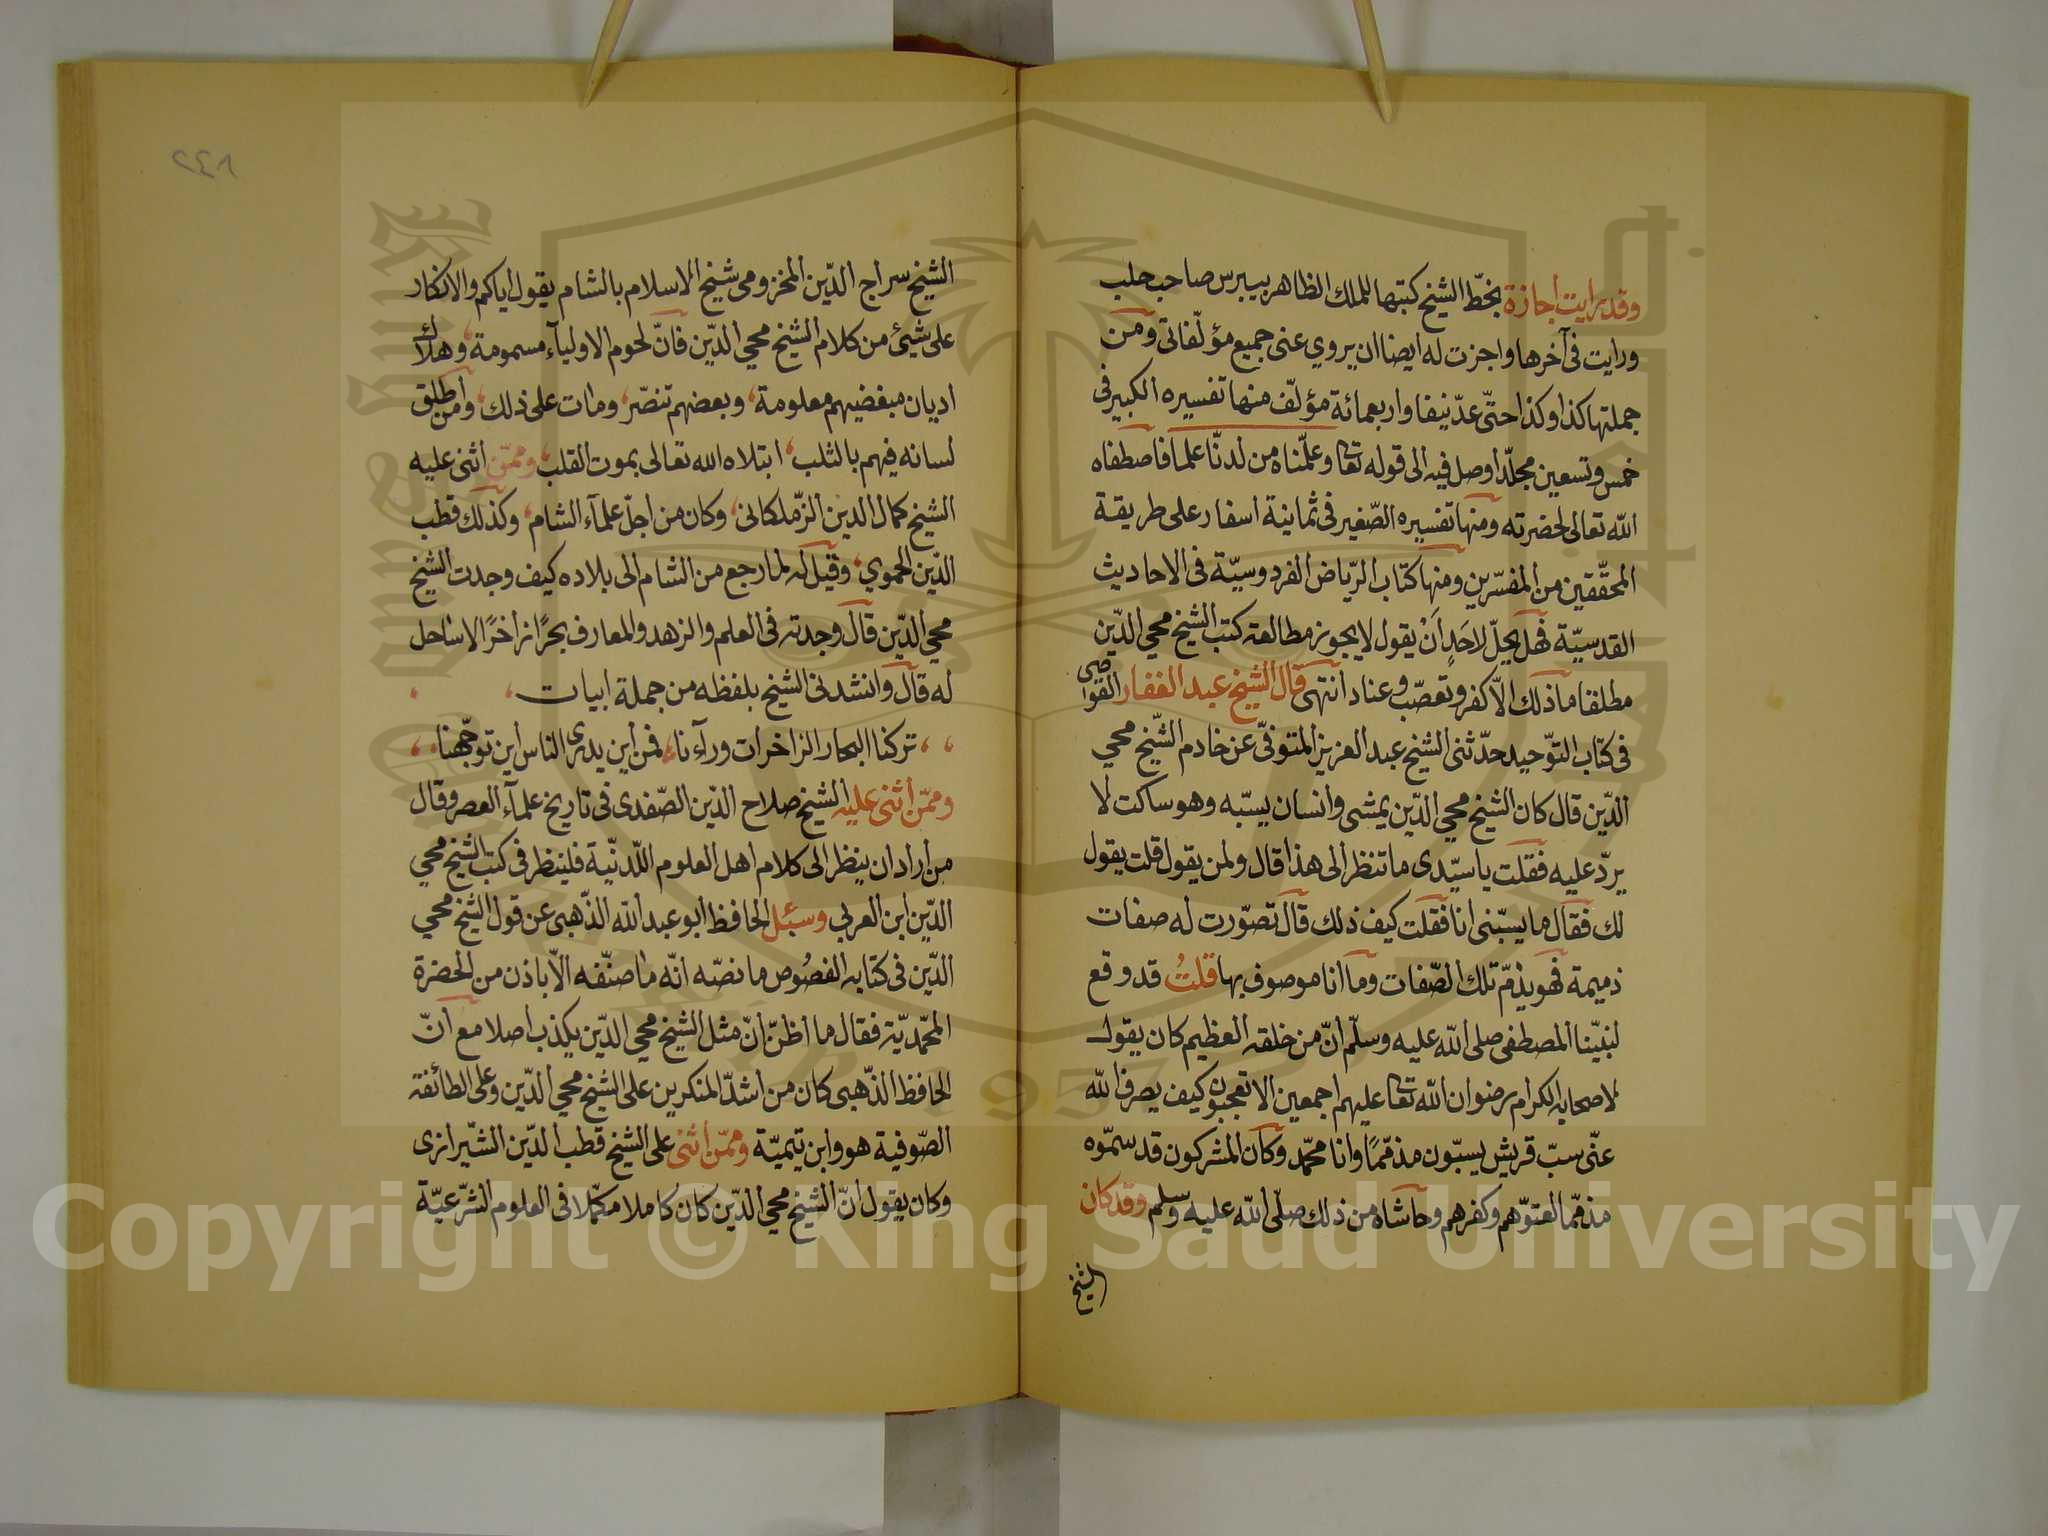 وقد رايت اجازة بخطّ الشيخ كتبها للملك الظاهر بيبرس صاحب حلب
ورايت فى آخرها واجزت له ايضا ان يروي عنى جميع مؤلّفاتى ومن
جملتها كذا وكذا حتّى عدّ نيفا واربعمائة مؤلّف منها تفسيره الكبير فى
خمس وتسعين مجلّدا وصل فيه الى قوله تعالى وعلّمناه من لدنّا علما فاصطفاه
الله تعالى لحضرته ومنها تفسيره الصّغير فى ثمانية اسفار على طريقة
المحقّقين من المفسّرين ومنها كتاب الرّياض الفردوسيّة فى الاحاديث
القدسيّة فهل يحلّ لاحدٍ أنْ يقول لا يجوز مطالعة كتب الشيخ محيي الدّين
مطلقا ما ذلك الاّ كفر وتعصّب وعناد انتهى قال الشيخ عبد الغفار القواصى
فى كتاب التوّحيد حدّثنى الشيخ عبد العزيز المتوفّى عن خادم الشّيخ محيي
الدّين قال كان الشيخ محيي الدّين يمشى وانسان يسبّه وهو ساكت لا
يردّ عليه فقلت يا سيّدى ما تنظر الى هذا قال ولمن يقول قلت يقول
لك فقال ما يسبّنى انا فقلت كيف ذلك قال تصوّرت له صفات
ذميمة فهو يذمّ تلك الصّفات وما انا موصوف بها قلتُ قد وقع
لنبيّنا المصطفى صلى الله عليه وسلّم انّ من خلقه العظيم كان يقول
لاصحابه الكرام رضوان الله تعالى عليهم اجمعين الا تعجبون كيف يصرف الله
عنّى سبّ قريش يسبّون مذمّمًا وانا محمّد وكان المشركون قد سمّوه
مذمّما لعتوّهم وكفرهم وحاشاه من ذلك صلّى الله عليه وسلم وقد كان
الشيخ
٢٤٨
الشيخ سراج الدّين المخزومى شيخ الاسلام بالشام يقول اياكم والانكار
على شيئ من كلام الشيخ محيي الدّين فانّ لحوم الاولياء مسمومة، وهلاك
اديان مبغضيهم معلومة، وبعضهم تنصّر، ومات على ذلك، ومن اطلق
لسانه فيهم بالثلب، ابتلاه الله تعالى بموت القلب، وممّن اثنى عليه
الشيخ كمال الدين الزّملكانى، وكان من اجلّ علمآء الشام، وكذلك قطب
الدّين الحموي، وقيل له لما رجع من الشام الى بلاده كيف وجدت الشيخ
محيي الدّين قال وجدته فى العلم والزهد والمعارف بحرًا زاخرًا لا ساحل
له قال وانشدنى الشيخ بلفظه من جملة ابيات
تركنا البحار الزاخرات ورآءنا، فمن اين يدرى الناس اين توجّهنا
وممّن اثنى عليه الشيخ صلاح الدّين الصّفدى فى تاريخ علمآء العصر وقال
من أراد ان ينظر الى كلام اهل العلوم اللّدنّية فلينظر فى كتب الشيخ محيي
الدّين ابن العربي وسئل الحافظ ابو عبد الله الذّهبى عن قول الشيخ محيي
الدّين فى كتابه الفصُوص ما نصّه انّه ما صنّفه الاّ باذن من الحضرة
المحمّديّة فقال ما اظنّ انّ مثل الشيخ محيي الدّين يكذب اصلا مع انّ
الحافظ الذّهبى كان من اشدّ المنكرين على الشيخ محيي الدّين وعلى الطائفة
الصّوفية هو وابن تيميّة وممّن اثنى على الشيخ قطب الدّين الشّيرازى
وكان يقول انّ الشيخ محيي الدّين كان كاملا مكمّلا فى العلوم الشّرعيّة
Copyright © King Saud University
1957